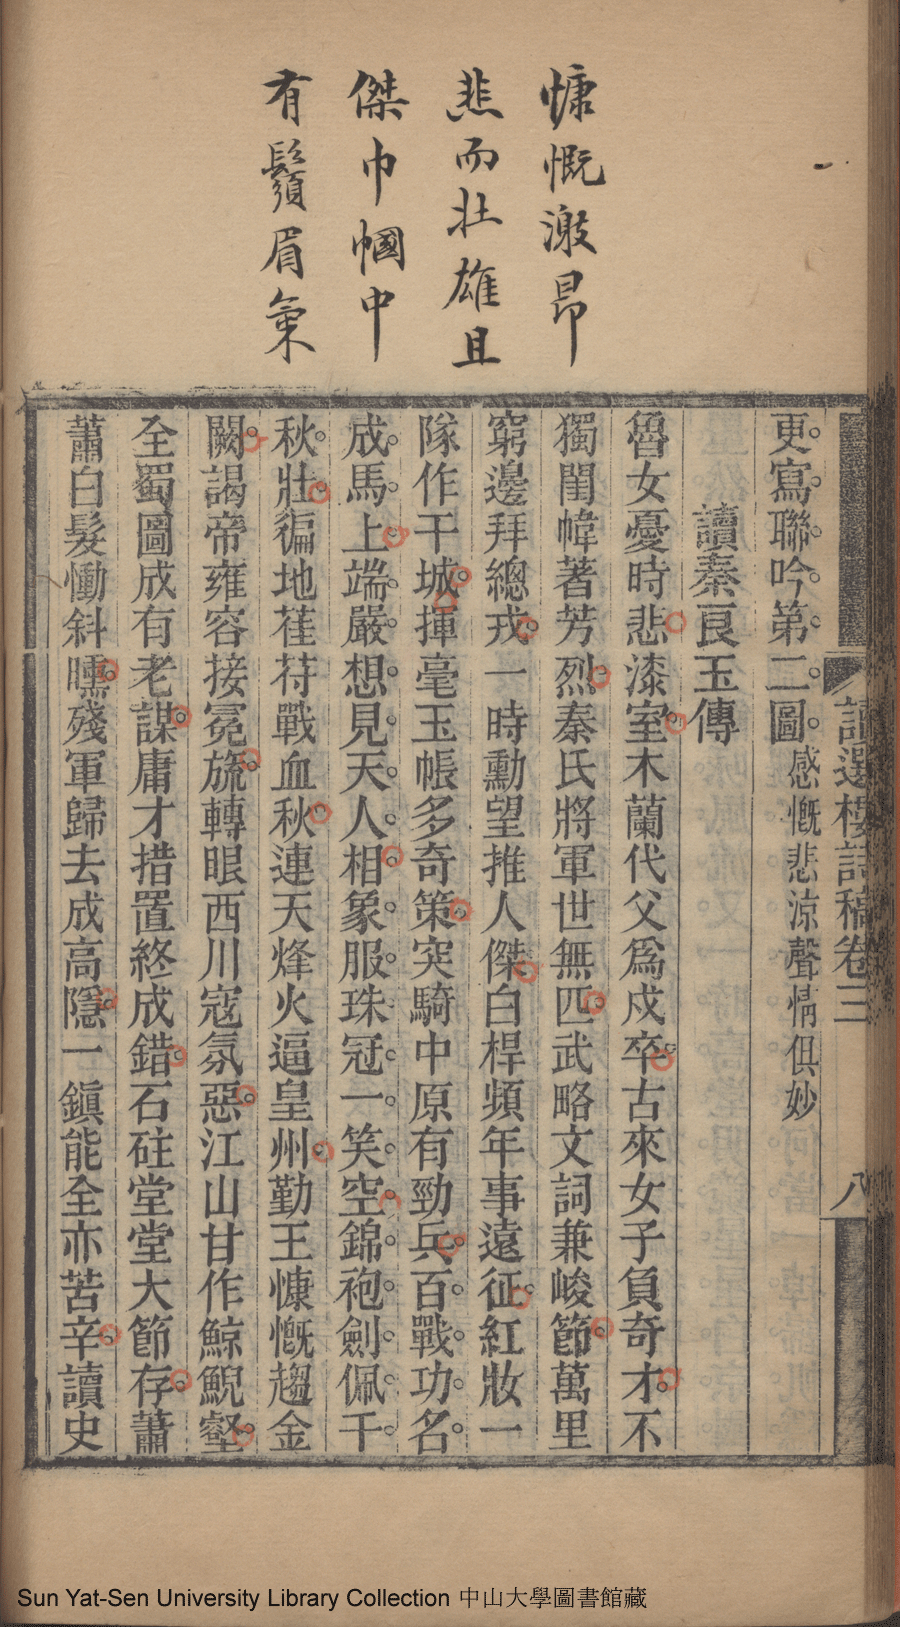 慷慨激昂
悲而壯雄且
傑巾幗中
有鬚眉氣
讀選樓詩稿卷三
八
更寫聯吟第二圖感慨悲涼聲情俱妙
讀秦良玉傳
魯女憂時悲漆室木蘭代父爲戍卒古來女子負奇才不
獨閨幃著芳烈秦氏將軍世無匹武略文詞兼峻節萬里
窮邊拜總戎一時勳望推人傑白桿頻年事遠征紅妝一
隊作干城揮毫玉帳多奇策突騎中原有勁兵百戰功名
成馬上端嚴想見天人相象服珠冠一笑空錦袍劍佩千
秋壯徧地萑苻戰血秋連天烽火逼皇州勤王慷慨趨金
闕謁帝雍容接冕旒轉眼西川寇氛惡江山甘作鯨鯢壑
全蜀圖成有老謀庸才措置終成錯石砫堂堂大節存蕭
蕭白髮慟斜曛殘軍歸去成高隱一鎭能全亦苦辛讀史
Sun Yat-Sen University Library Collection 中山大學圖書館藏